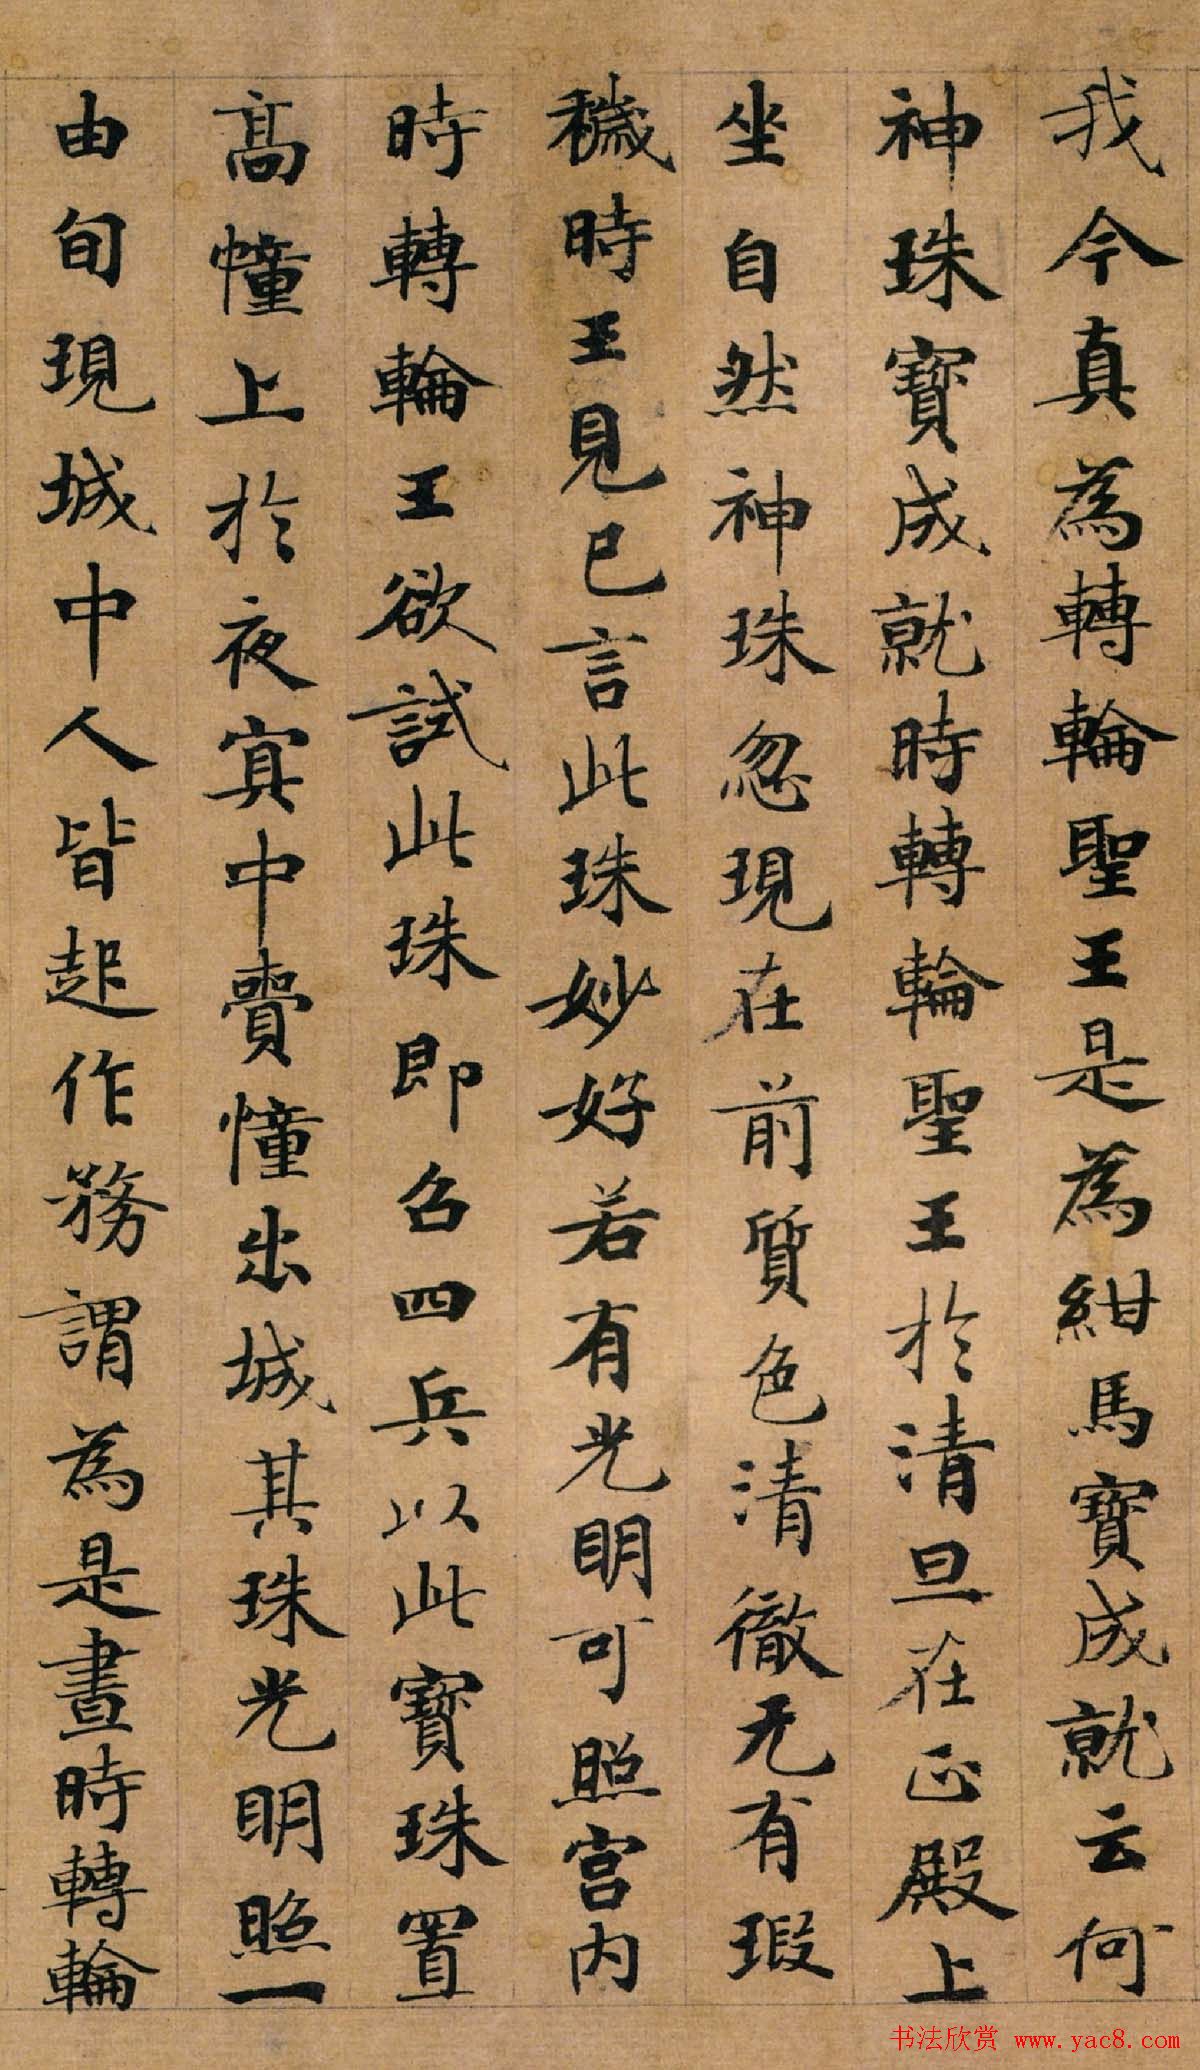 我今真為轉輪聖王是為紺馬寶成就云何
神珠寶成就時轉輪聖王於清旦在正殿上
坐自然神珠忽現在前質色清徹无有瑕
穢時王見已言此珠妙好若有光明可照宮內
時轉輪王欲試此珠即召四兵以此寶珠置
髙幢上於夜冥中賷幢出城其珠光明照一
由旬現城中人皆起作務謂為是晝時轉輪
书法欣赏 www.yac8.com